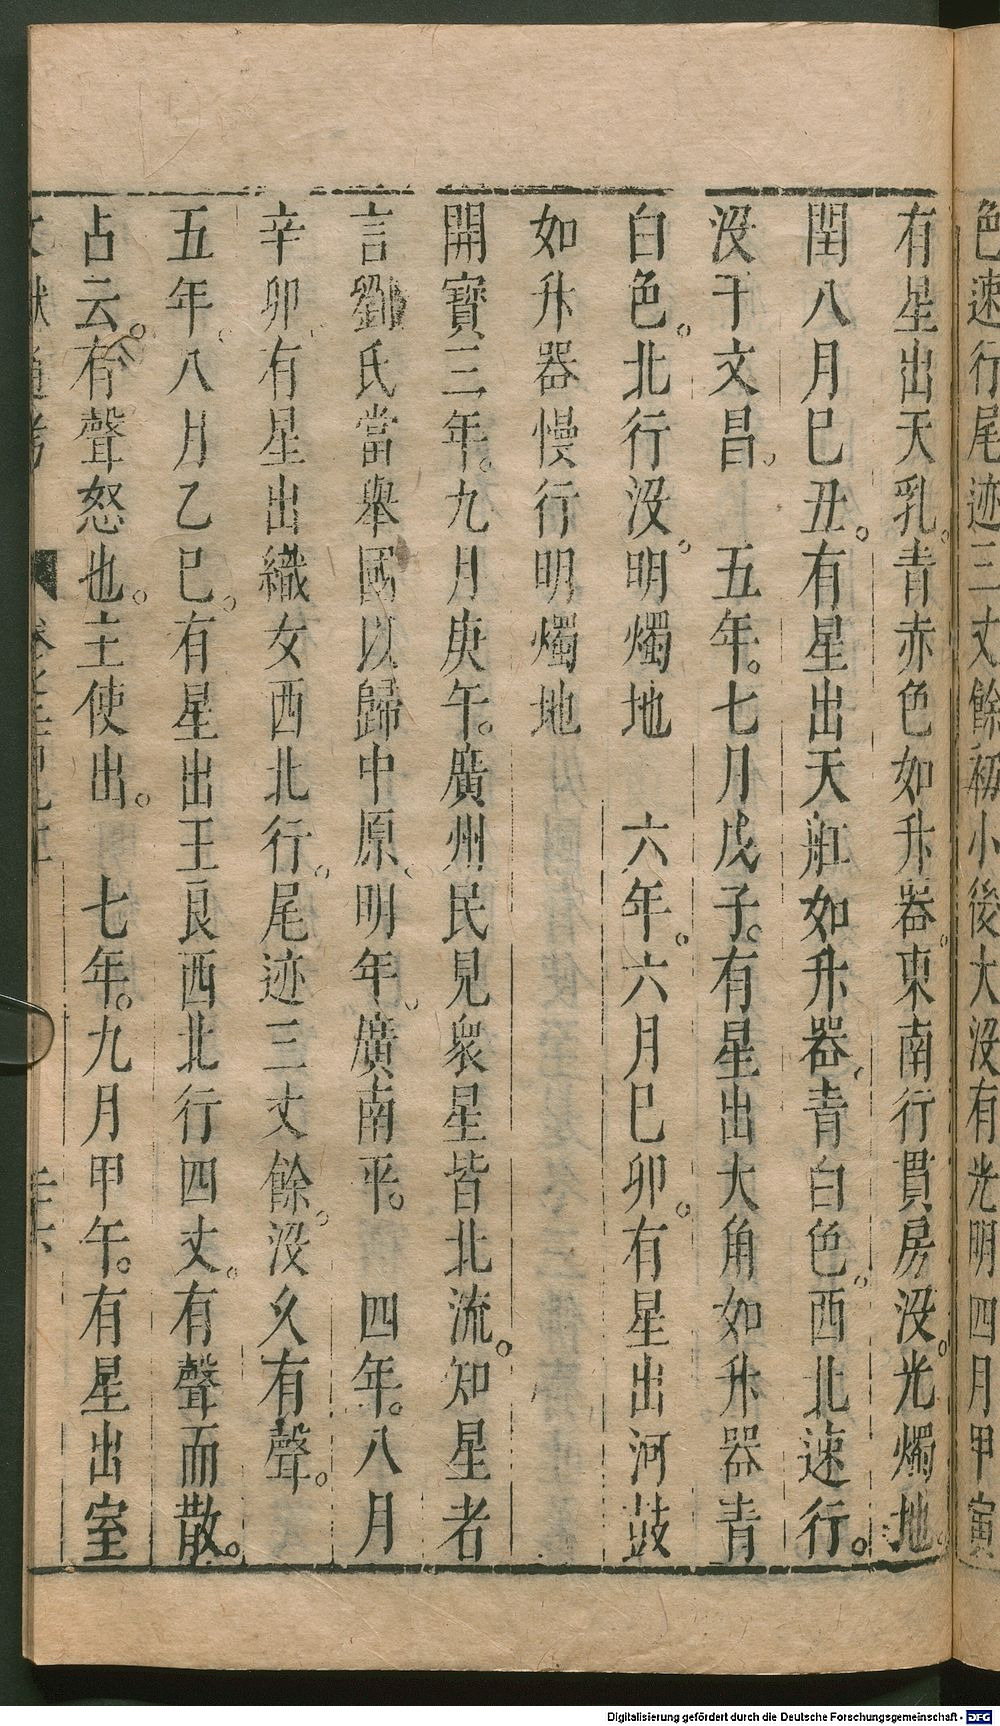 色速行尾迹三丈餘初小後大没有光明四月甲寅
有星出天乳。青赤色如升器。東南行貫房没。光燭地。
閏八月巳丑。有星出天舡如升器。青白色。西北速行。
没于文昌。　五年。七月戊子。有星出大角如升器青
白色。北行没。明燭地　六年。六月巳卯。有星出河鼓
如升器慢行明燭地
開寶三年。九月庚午。廣州民見衆星皆北流。知星者
言劉氏當舉國以歸中原。明年。廣南平。　四年。八月
辛卯。有星出織女西北行。尾迹三丈餘。没久有聲。
五年。八月乙巳。有星出王良西北行四丈。有聲而散。
占云。有聲怒也。主使出。　七年。九月甲午。有星出室
文獻通考
Digitalisierung gefördert durch die Deutsche Forschungsgemeinschaft - DFG